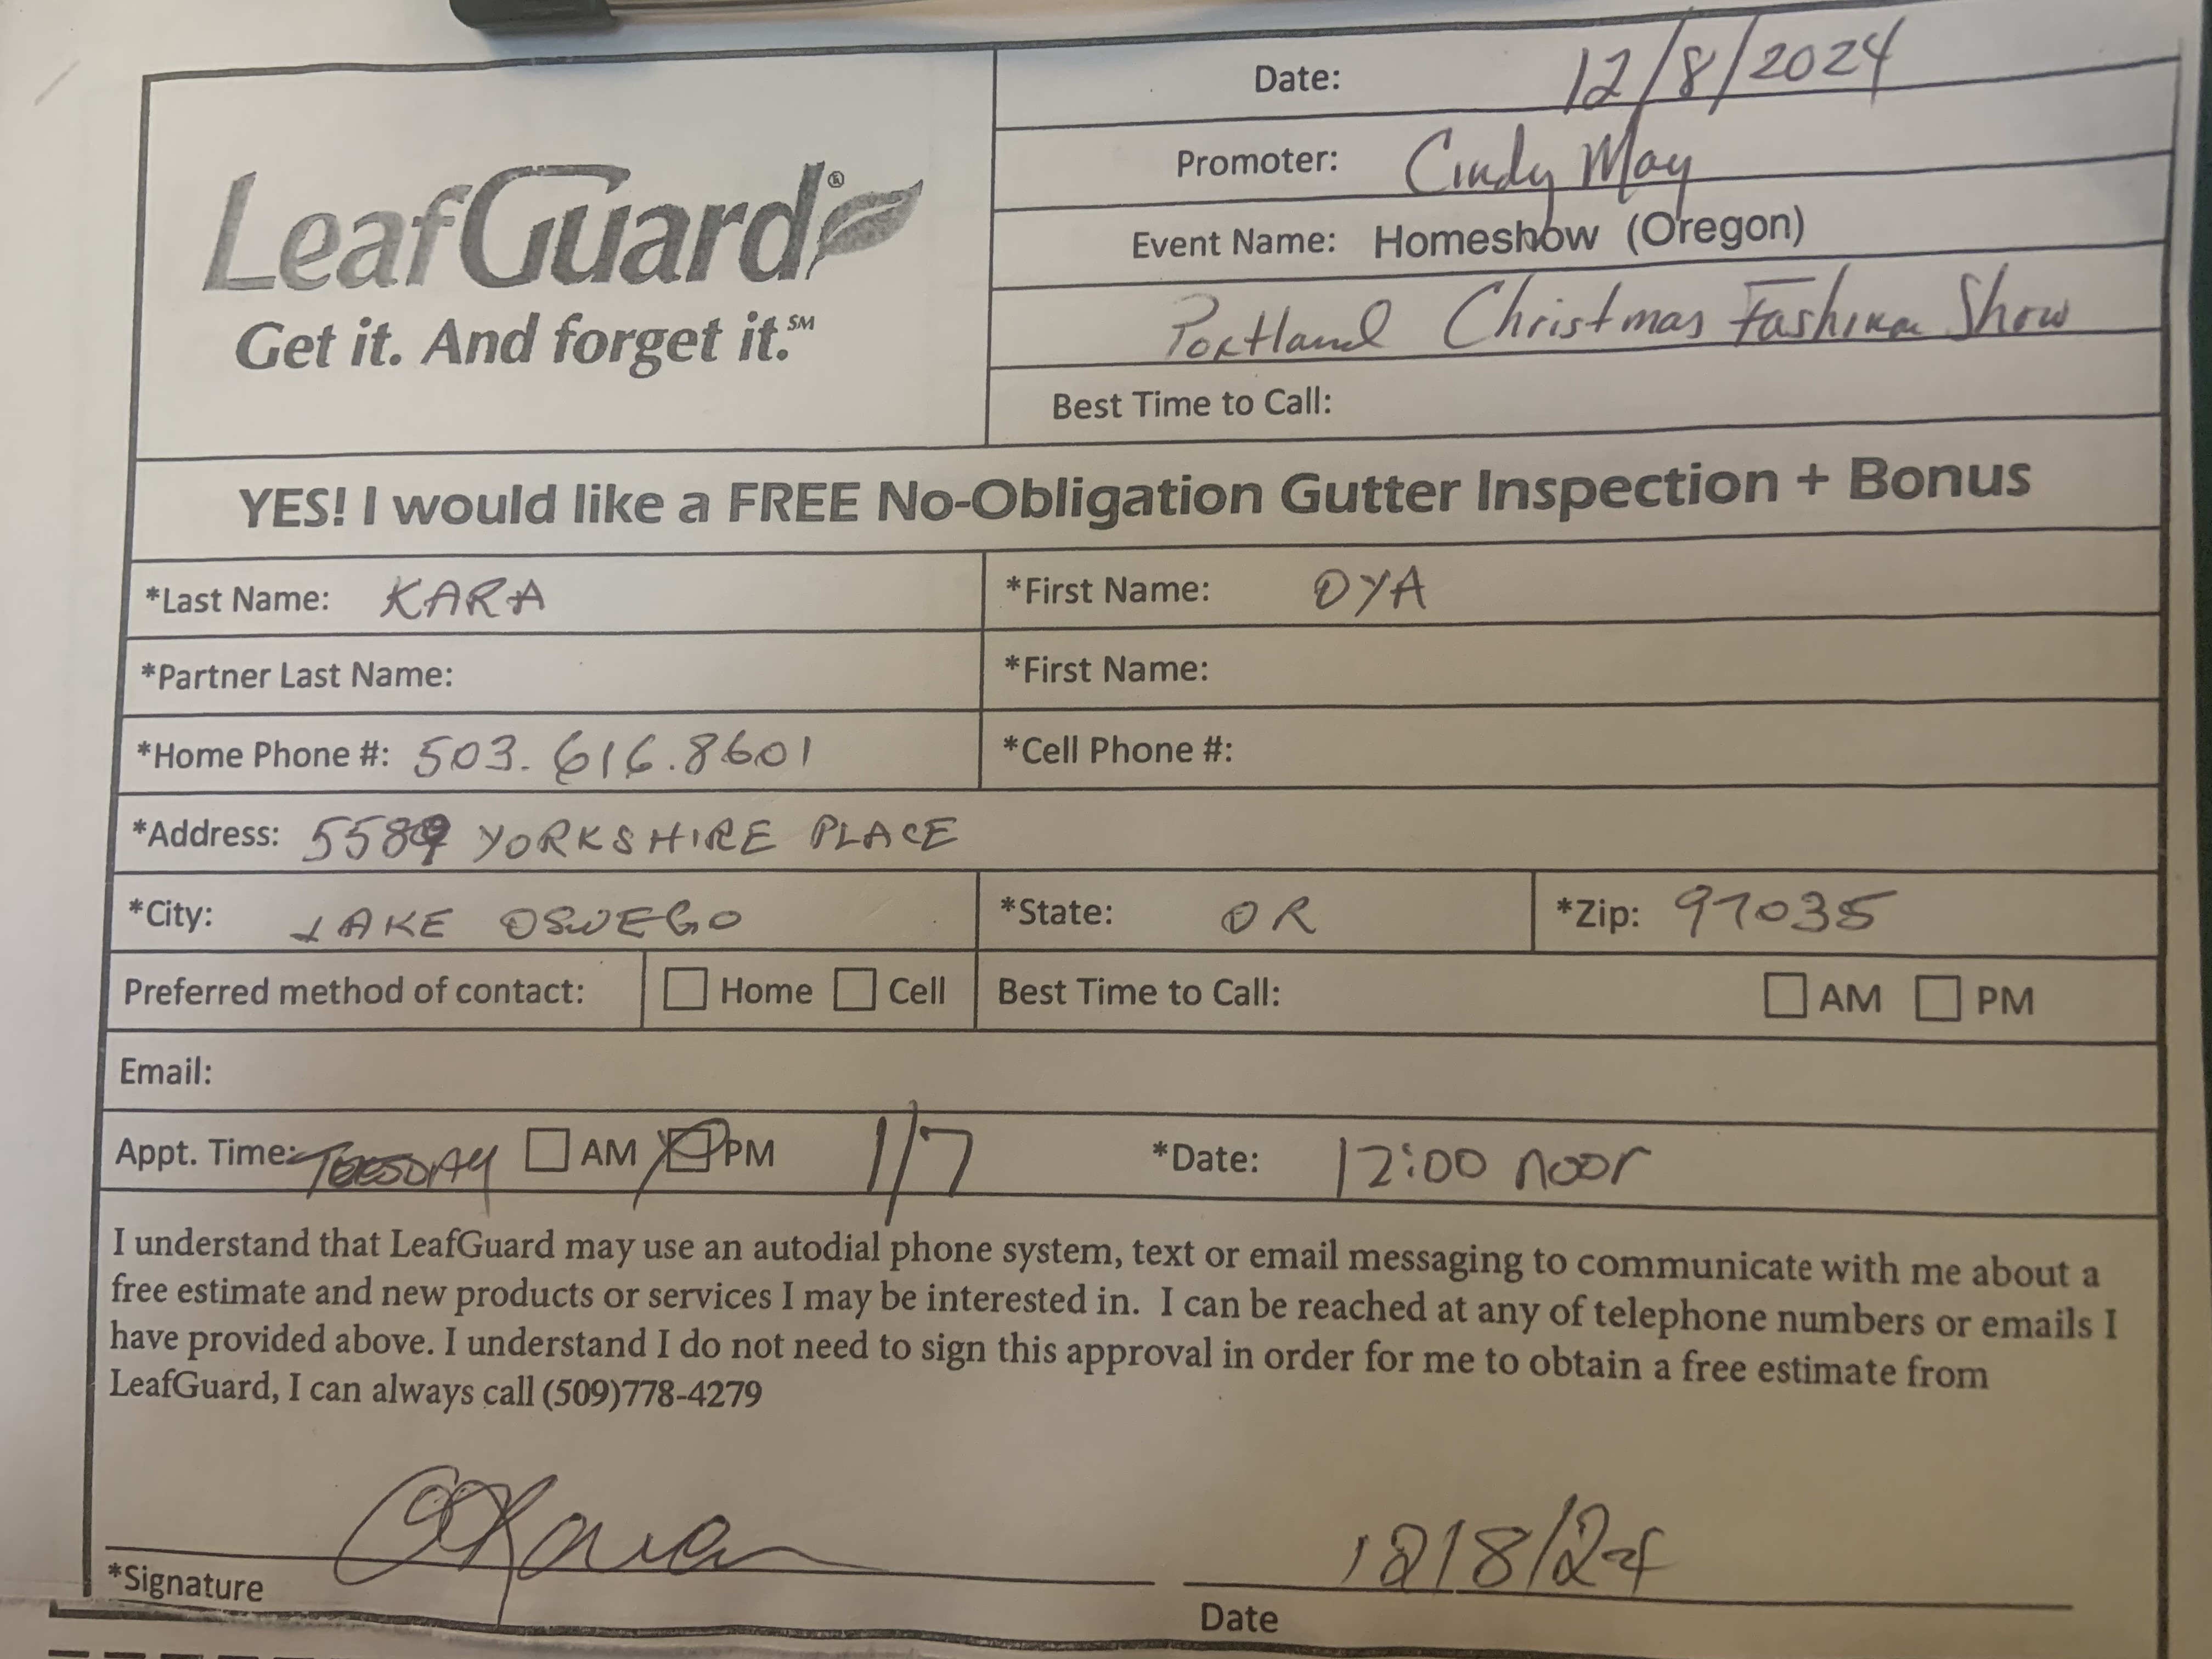 LeafGuard®
Get it. And forget it.℠
Date: 12/8/2024
Promoter: Cindy May
Event Name: Homeshow (Oregon)
Portland Christmas Fashion Show
Best Time to Call:
YES! I would like a FREE No-Obligation Gutter Inspection + Bonus
*Last Name: KARA *First Name: OYA
*Partner Last Name: *First Name:
*Home Phone #: 503.616.8601 *Cell Phone #:
*Address: 5589 YORKSHIRE PLACE
*City: LAKE OSWEGO *State: OR *Zip: 97035
Preferred method of contact: ☐ Home ☐ Cell Best Time to Call: ☐ AM ☐ PM
Email:
Appt. Time: Tuesday ☐ AM ☒ PM 1/7 *Date: 12:00 noon
I understand that LeafGuard may use an autodial phone system, text or email messaging to communicate with me about a
free estimate and new products or services I may be interested in. I can be reached at any of telephone numbers or emails I
have provided above. I understand I do not need to sign this approval in order for me to obtain a free estimate from
LeafGuard, I can always call (509)778-4279
12/8/24
*Signature Date